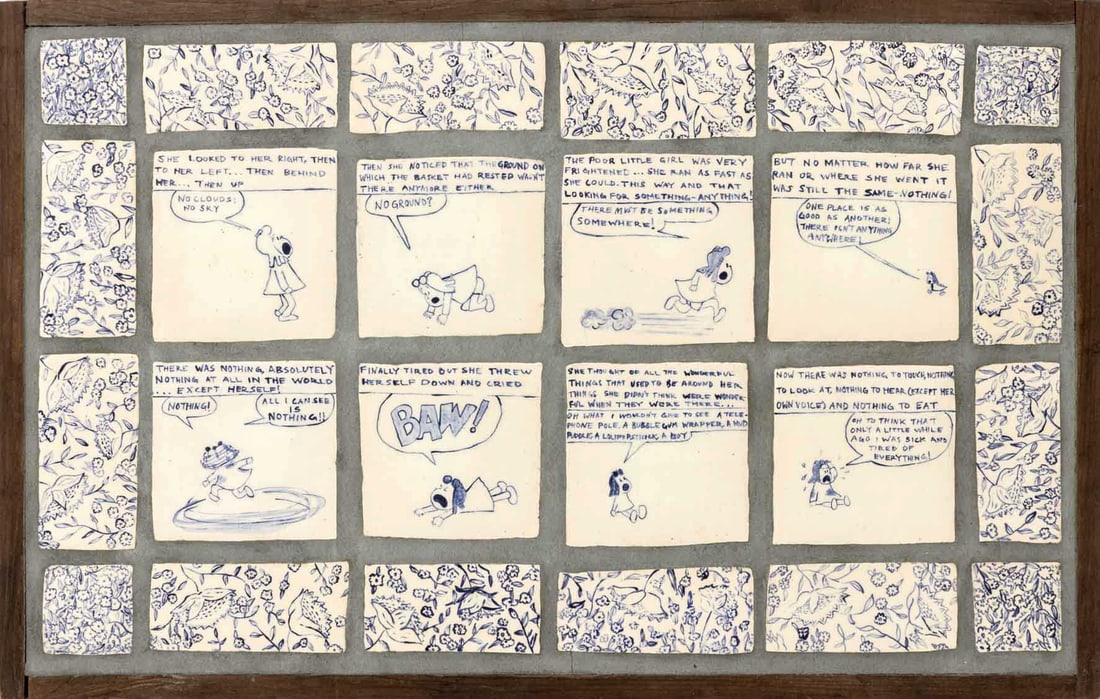 SHE LOOKED TO HER RIGHT, THEN
TO HER LEFT... THEN BEHIND
HER... THEN UP
NO CLOUDS!
NO SKY
THEN SHE NOTICED THAT THE GROUND ON
WHICH THE BASKET HAD RESTED WASN'T
THERE ANYMORE EITHER
NO GROUND?
THE POOR LITTLE GIRL WAS VERY
FRIGHTENED... SHE RAN AS FAST AS
SHE COULD. THIS WAY AND THAT
LOOKING FOR SOMETHING-ANYTHING!
THERE MUST BE SOMETHING
SOMEWHERE!
BUT NO MATTER HOW FAR SHE
RAN OR WHERE SHE WENT IT
WAS STILL THE SAME-NOTHING!
ONE PLACE IS AS
GOOD AS ANOTHER!
THERE ISN'T ANYTHING
ANYWHERE!
THERE WAS NOTHING, ABSOLUTELY
NOTHING AT ALL IN THE WORLD
... EXCEPT HERSELF!
NOTHING!
ALL I CAN SEE
IS
NOTHING!!
FINALLY TIRED OUT SHE THREW
HERSELF DOWN AND CRIED
BAW!
SHE THOUGHT OF ALL THE WONDERFUL
THINGS THAT USED TO BE AROUND HER
THINGS SHE DIDN'T THINK WERE WONDER-
FUL WHEN THEY WERE THERE...
OH WHAT I WOULDN'T GIVE TO SEE A TELE-
PHONE POLE, A BUBBLE GUM WRAPPER, A MUD
PUDDLE, A LOLIPOP STICK, A BOY
NOW THERE WAS NOTHING TO TOUCH, NOTHING
TO LOOK AT, NOTHING TO HEAR (EXCEPT HER
OWN VOICE) AND NOTHING TO EAT
OH TO THINK THAT
ONLY A LITTLE WHILE
AGO I WAS SICK AND
TIRED OF
EVERYTHING!